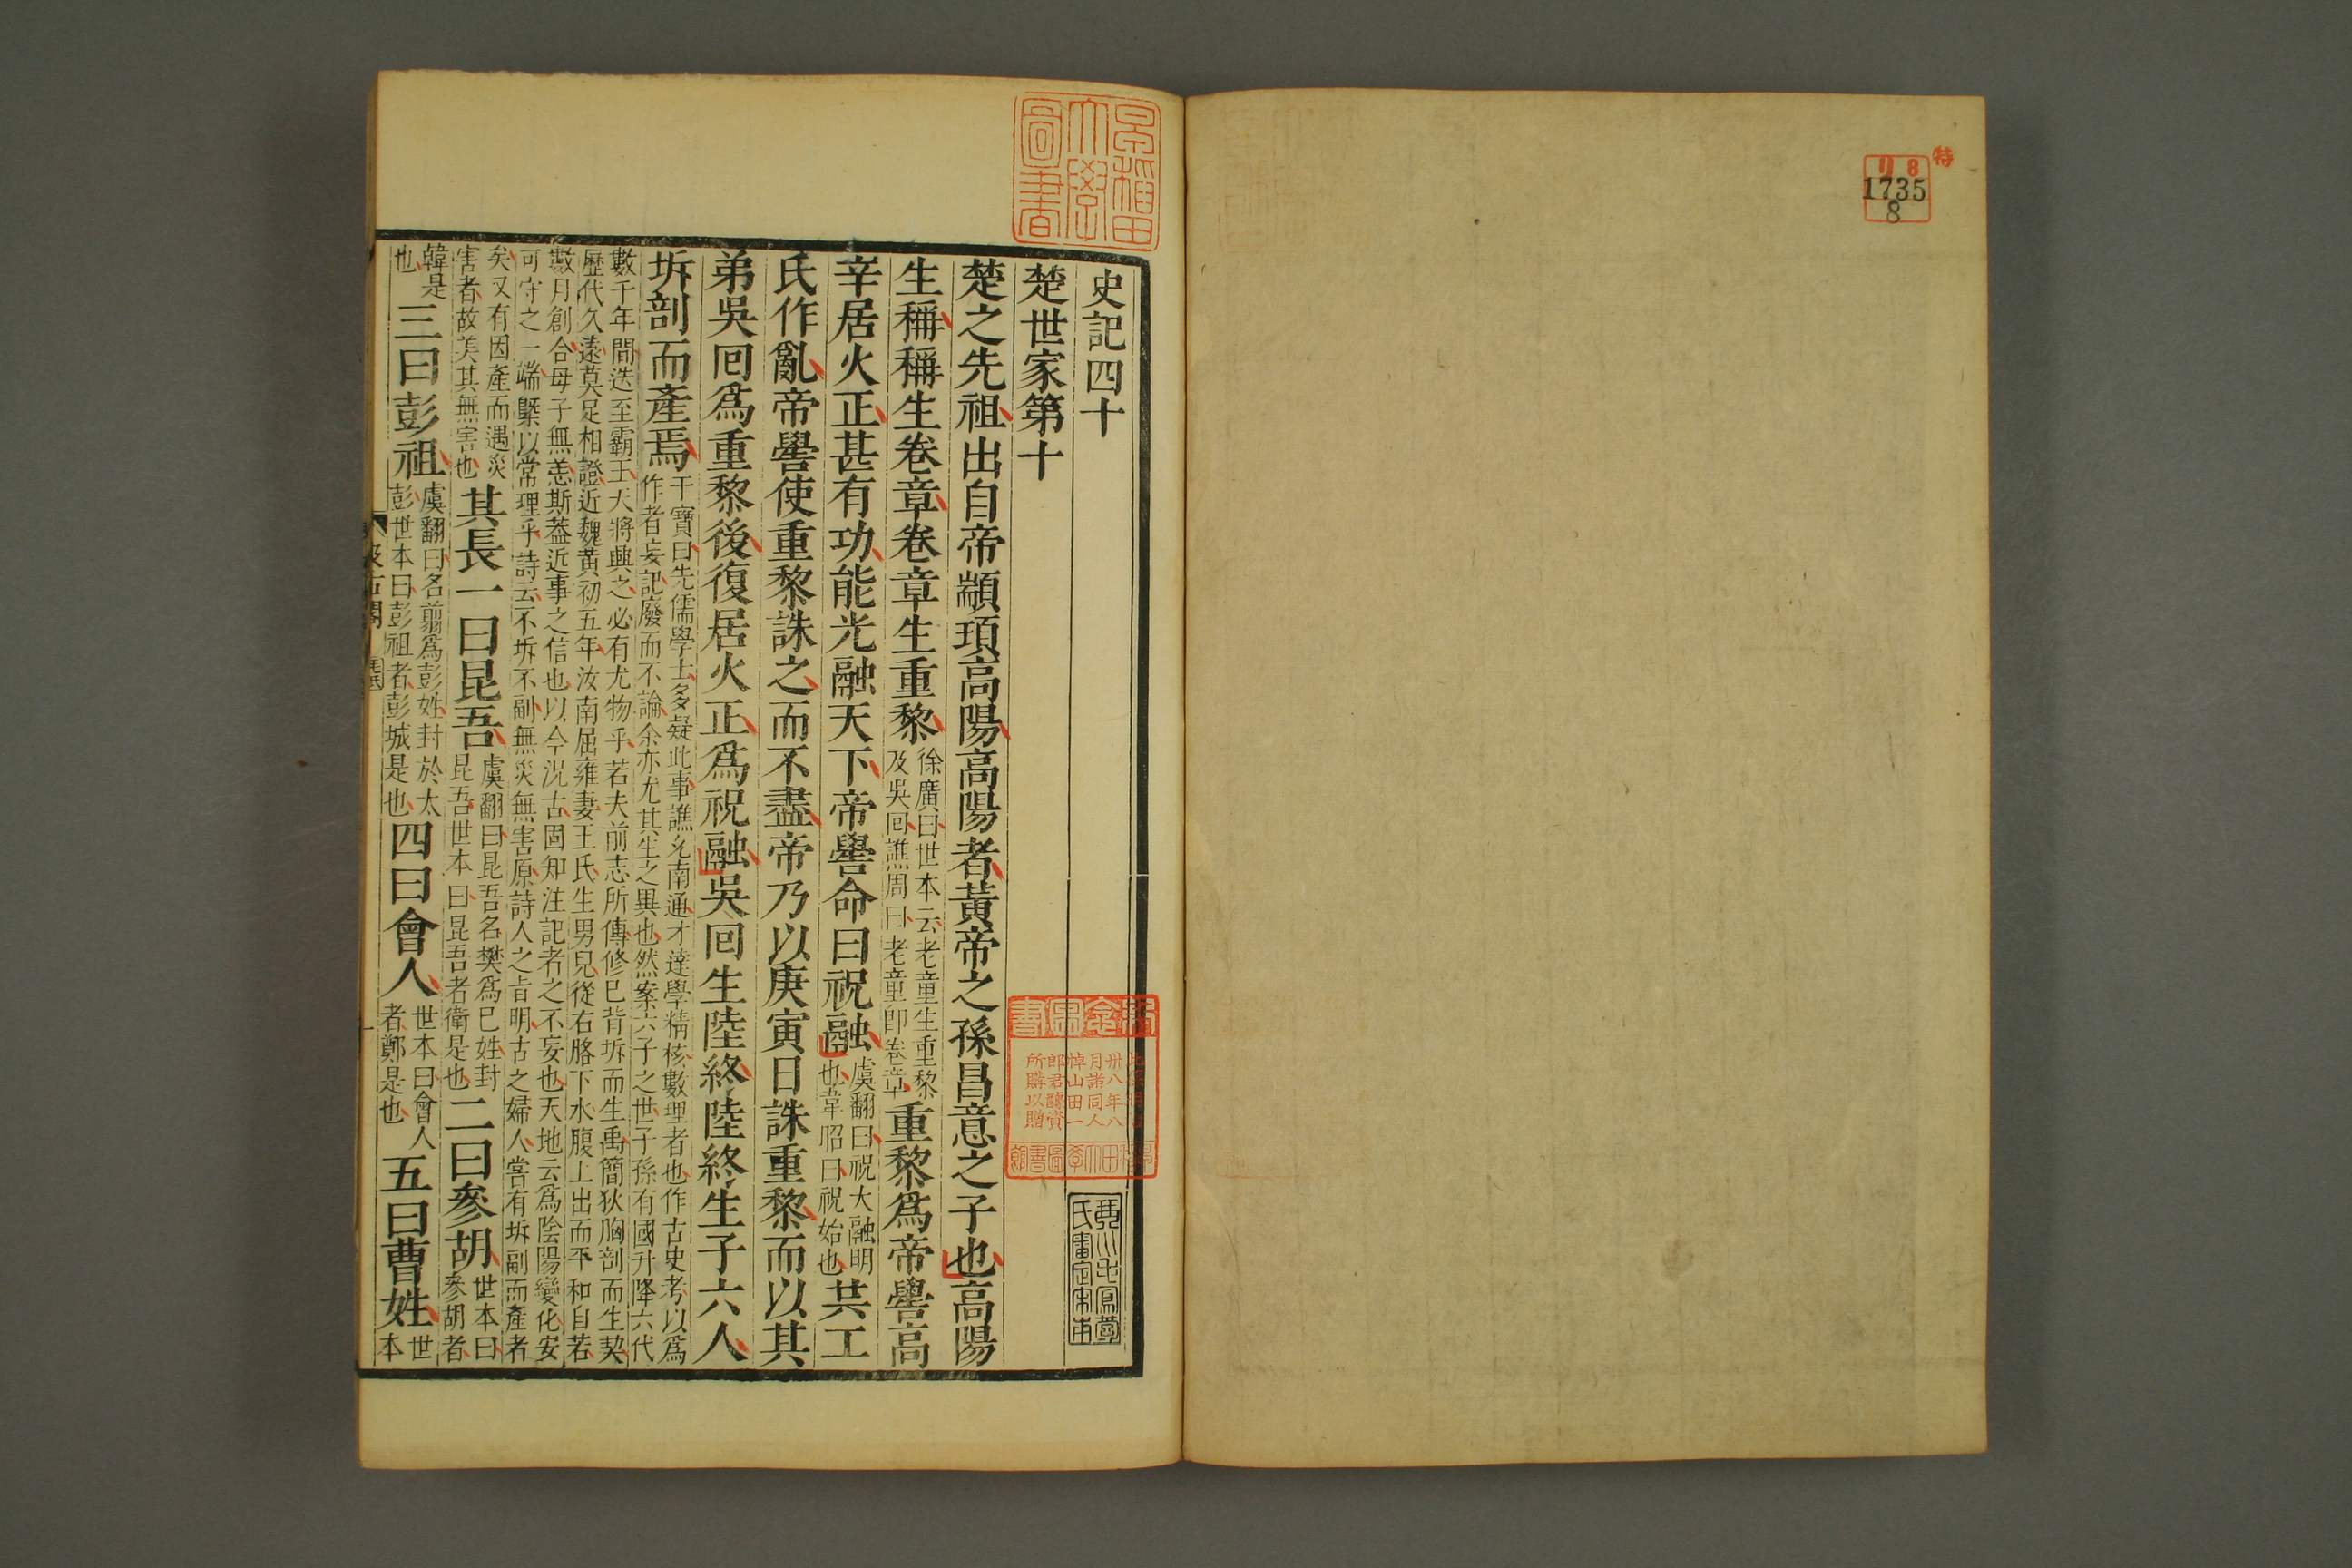 特
リ8
1735
8
早稲田
大學
圖書
史記四十
楚世家第十
楚之先祖出自帝顓頊高陽高陽者黃帝之孫昌意之子也高陽
生稱稱生卷章卷章生重黎
徐廣曰世本云老童生重黎
及吳回譙周曰老童卽卷章
重黎爲帝嚳高
辛居火正甚有功能光融天下帝嚳命曰祝融
虞翻曰祝大融明
也韋昭曰祝始也
共工
氏作亂帝嚳使重黎誅之而不盡帝乃以庚寅日誅重黎而以其
弟吳回爲重黎後復居火正爲祝融吳回生陸終陸終生子六人
坼剖而產焉
干寶曰先儒學士多疑此事譙允南通才達學精核數理者也作古史考以爲
作者妄記廢而不論余亦尤其生之異也然案六子之世子孫有國升降六代
數千年間迭至霸王天將興之必有尤物乎若夫前志所傳修巳背坼而生禹簡狄胸剖而生契
歷代久遠莫足相證近魏黃初五年汝南屈雍妻王氏生男兒從右胳下水腹上出而平和自若
數月創合母子無恙斯葢近事之信也以今況古固知注記者之不妄也天地云爲陰陽變化安
可守之一端槩以常理乎詩云不坼不副無災無害原詩人之旨明古之婦人嘗有坼副而產者
矣又有因產而遇災
害者故美其無害也
其長一曰昆吾
虞翻曰昆吾名樊爲巳姓封
昆吾世本曰昆吾者衛是也
二曰參胡
世本曰
參胡者
韓是
也
三曰彭祖
虞翻曰名翦爲彭姓封於大
彭世本曰彭祖者彭城是也
四曰會人
世本曰會人
者鄭是也
五曰曹姓
世
本
紀念圖書
卅八年八
月諸同人
悼山田一
郎君醵資
所購以贈
琴川毛鳳苞
氏審定宋本
汲古閣